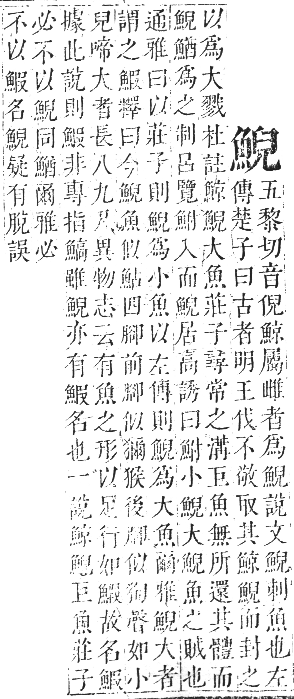 鯢
五黎切音倪鯨屬雌者爲鯢說文鯢刺魚也左
傳楚子曰古者明王伐不敬取其鯨鯢而封之
以爲大戮杜註鯨鯢大魚莊子尋常之溝巨魚無所還其體而
鯢鰌爲之制呂覽鮒入而鯢居高誘曰鮒小鯢大鯢魚之賊也
通雅曰以莊子則鯢爲小魚以左傳則鯢爲大魚爾雅鯢大者
謂之鰕釋曰今鯢魚似鮎四腳前腳似獼猴後腳似狗聲如小
兒啼大者長八九尺異物志云有魚之形以足行如鰕故名鰕
據此說則鰕非專指鰝雖鯢亦有鰕名也一說鯨鯢巨魚莊子
必不以鯢同鰌爾雅必
不以鰕名鯢疑有脫誤